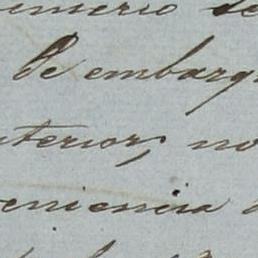 umerio se
de embarq
nterior, no
veniencia